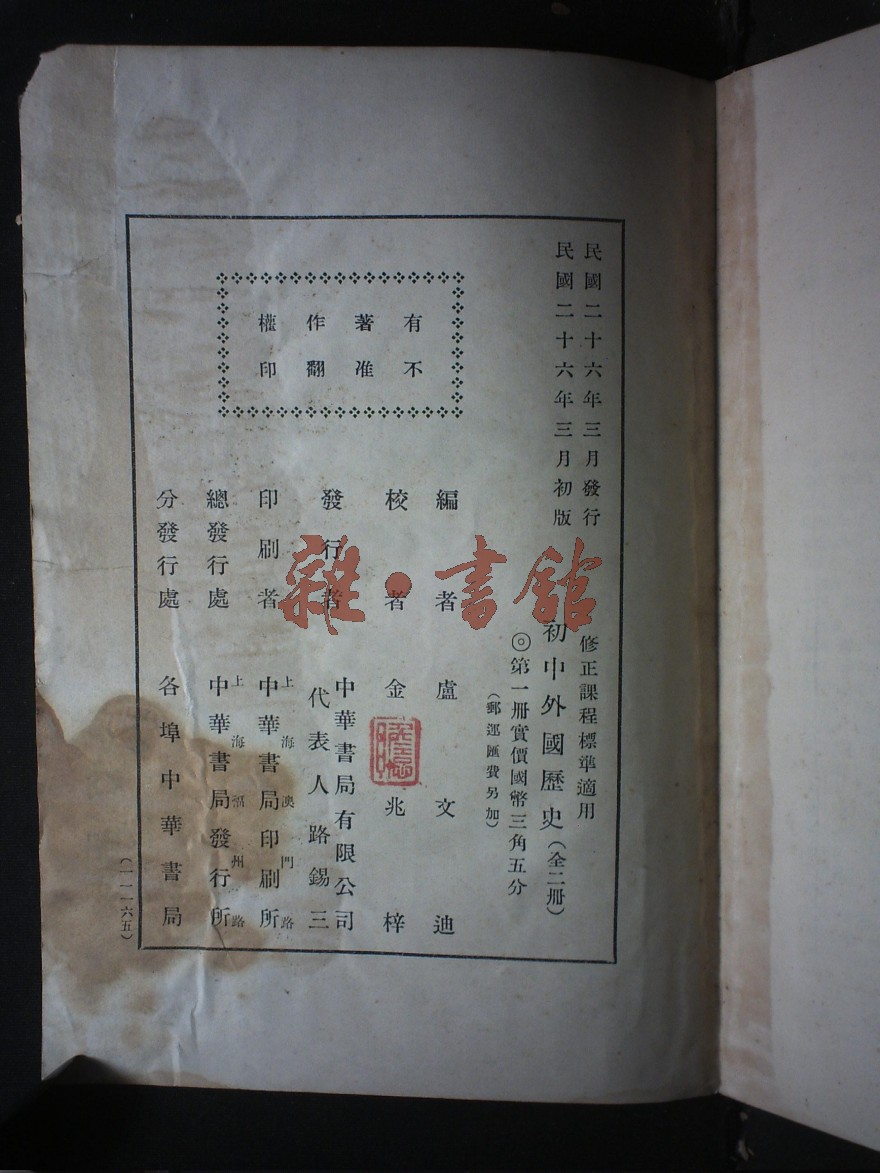 民國二十六年三月發行
民國二十六年三月初版
修正課程標準適用
初中外國歷史（全二册）
◎第一册實價國幣三角五分
（郵運匯費另加）
有不
著准
作翻
權印
編者 盧文迪
校者 金兆梓
發行者 中華書局有限公司
代表人路錫三
印刷者 上海澳門路
中華書局印刷所
總發行處 上海福州路
中華書局發行所
分發行處 各埠中華書局
（一一一六五）
雜·書館